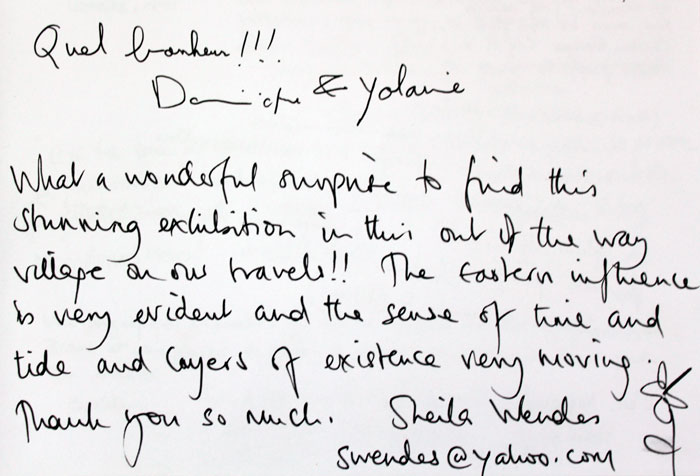 Quel bonheur!!!
Dominique & Yolanie
What a wonderful surprise to find this
stunning exhibition in this out of the way
village on our travels!! The Eastern influence
is very evident and the sense of time and
tide and layers of existence very moving.
Thank you so much. Sheila Wendes
swendes@yahoo.com